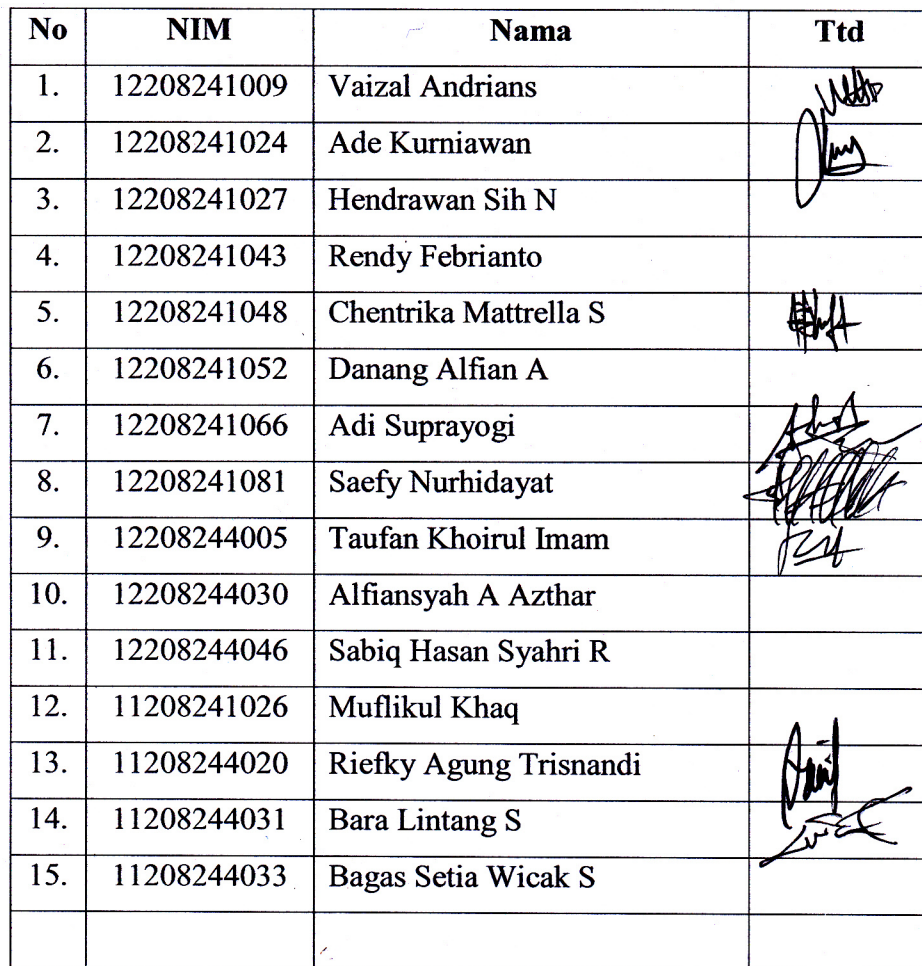 No NIM Nama Ttd
1. 12208241009 Vaizal Andrians
2. 12208241024 Ade Kurniawan
3. 12208241027 Hendrawan Sih N
4. 12208241043 Rendy Febrianto
5. 12208241048 Chentrika Mattrella S
6. 12208241052 Danang Alfian A
7. 12208241066 Adi Suprayogi
8. 12208241081 Saefy Nurhidayat
9. 12208244005 Taufan Khoirul Imam
10. 12208244030 Alfiansyah A Azthar
11. 12208244046 Sabiq Hasan Syahri R
12. 11208241026 Muflikul Khaq
13. 11208244020 Riefky Agung Trisnandi
14. 11208244031 Bara Lintang S
15. 11208244033 Bagas Setia Wicak S